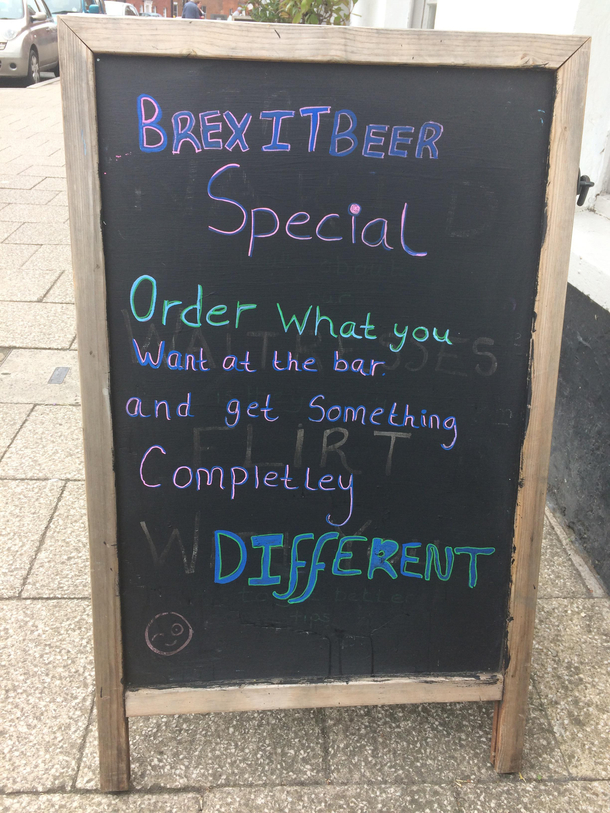 BREXIT BEER
Special
Order What you
Want at the bar.
and get Something
Completley
DIFFERENT